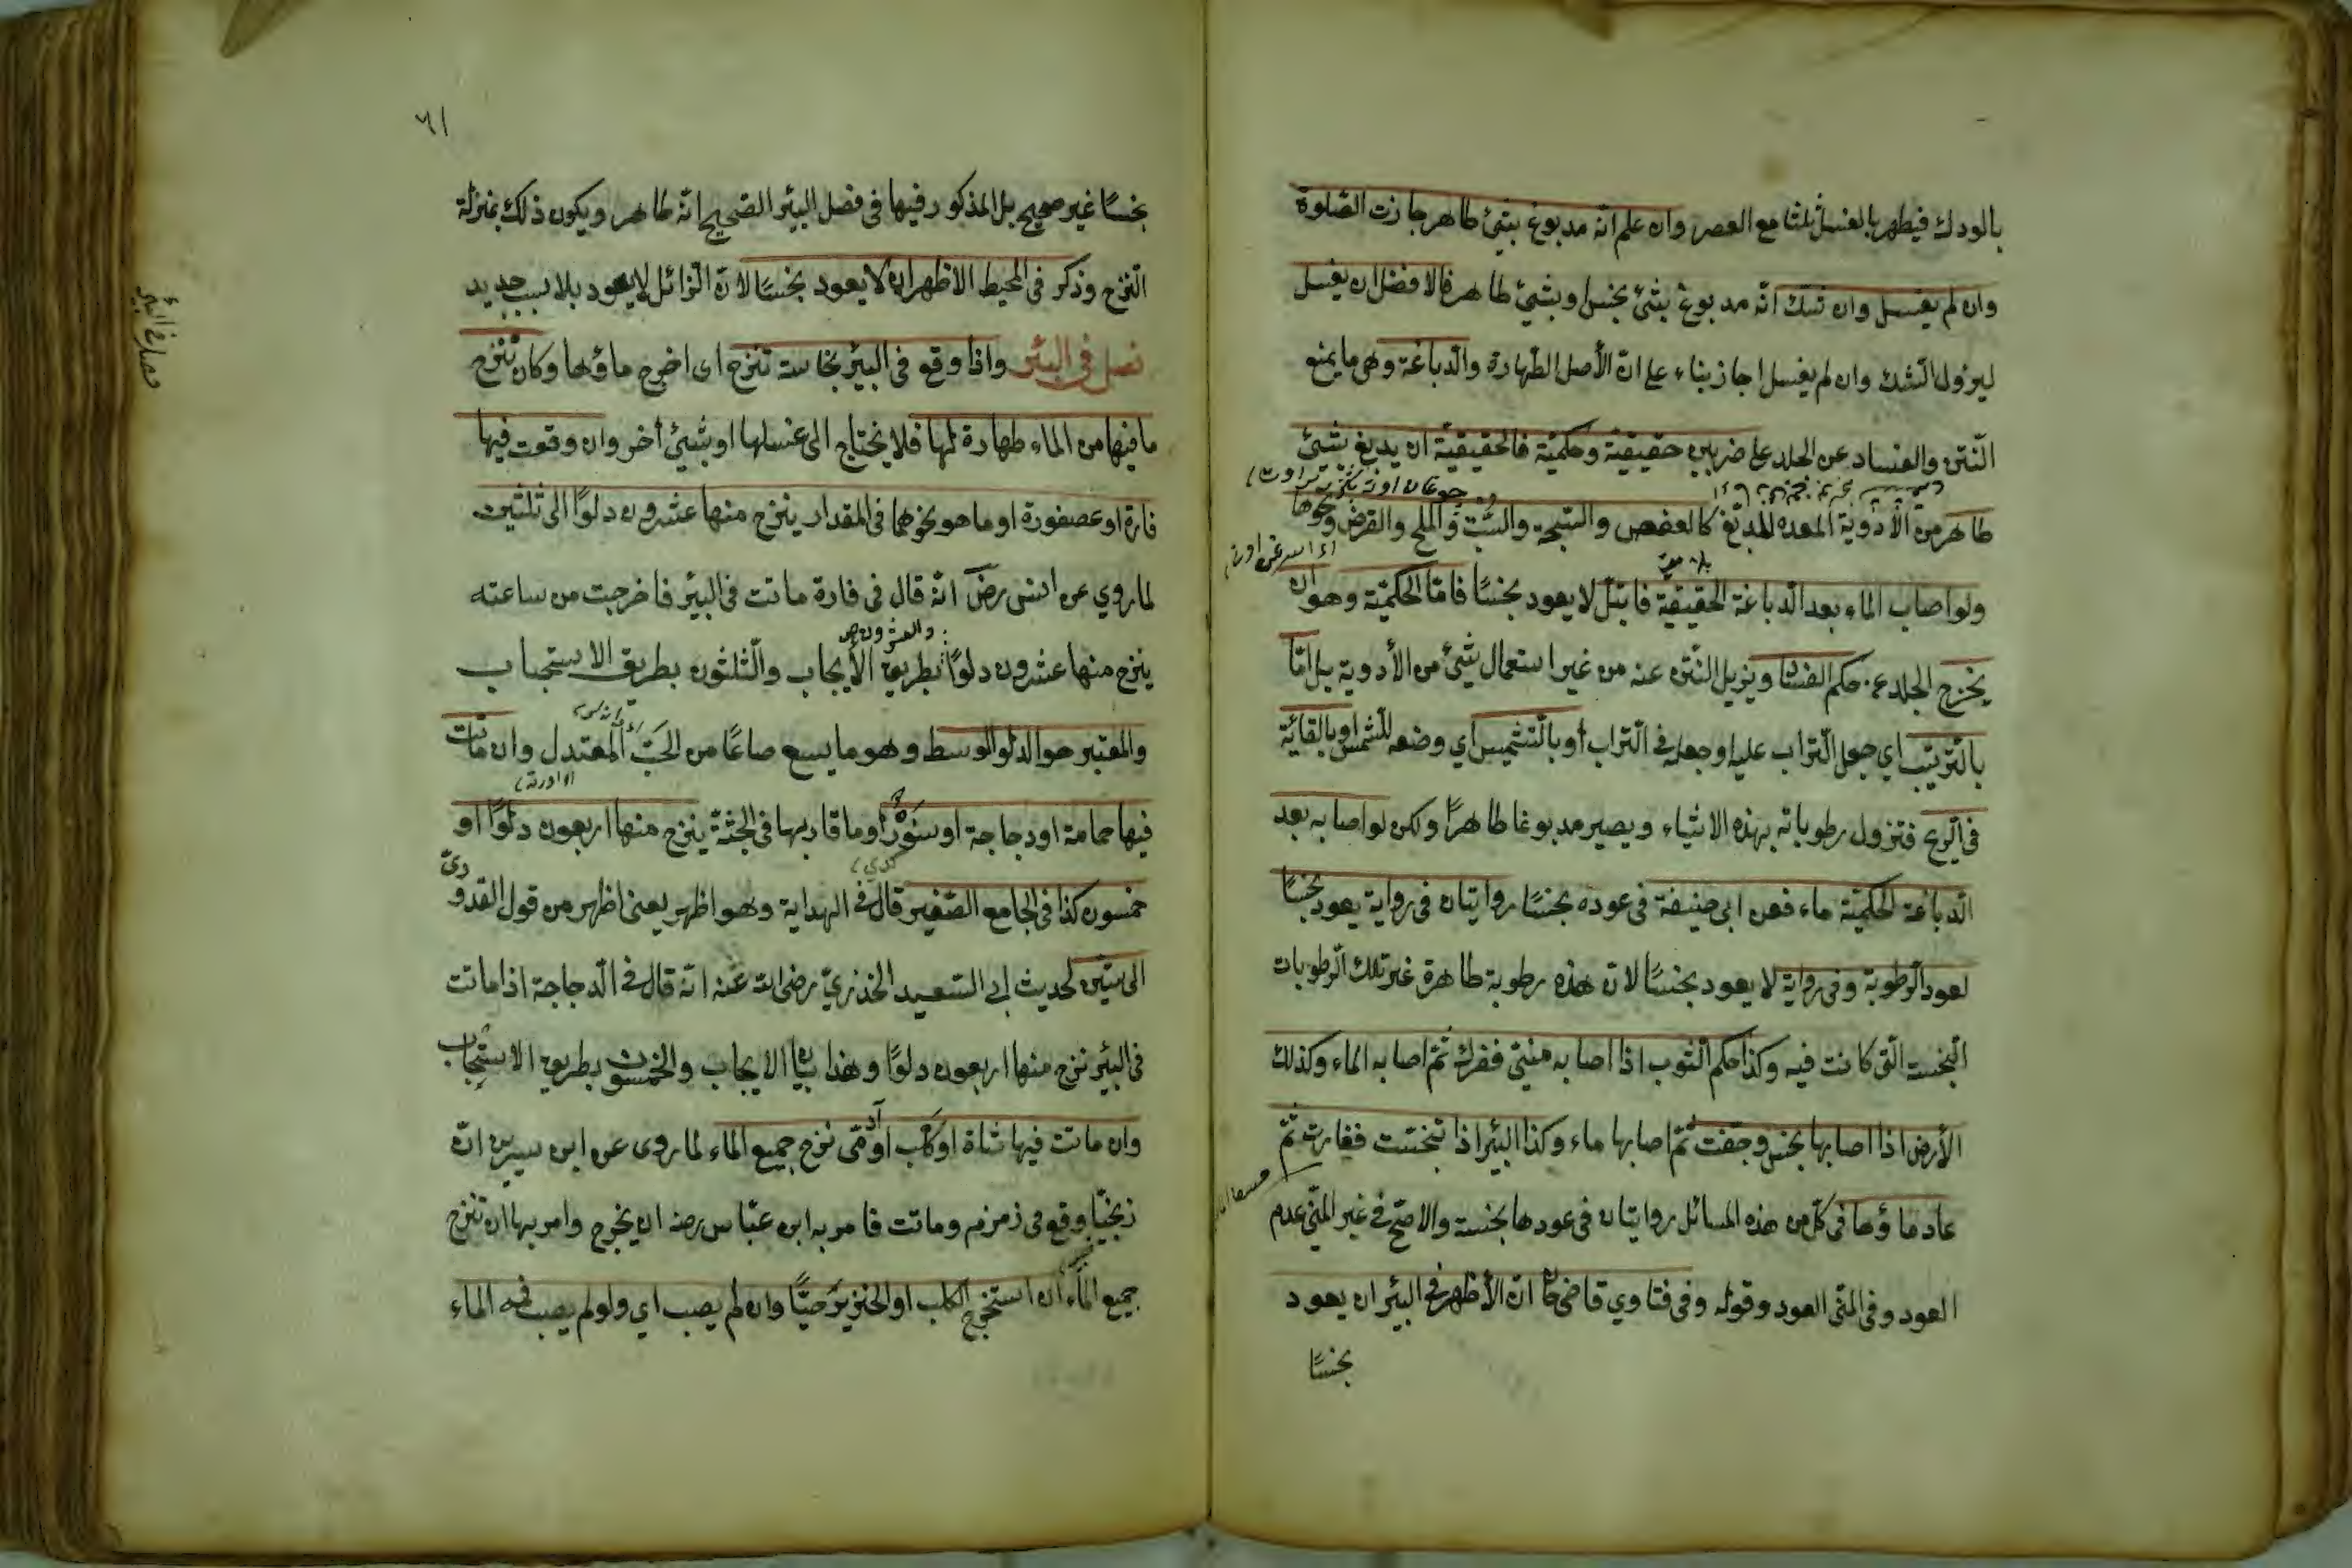 بالودك فيطهر بالغسل ثلثا مع العصر وان علم انّه مدبوغ بشئ طاهر جازت الصّلوة
وان لم يغسل وان شك انّه مدبوغ بشئ نجس او بشئ طاهر فالافضل ان يغسل
ليزول الشك وان لم يغسل جاز بناء على انّ الأصل الطّهارة والدّباغة وهى ما يمنع
النّتن والفساد عن الجلد على ضربين حقيقيّة وحكميّة فالحقيقيّة ان يدبغ بشئ
طاهر من الأدوية المعدة للدبغ كالعفص والسّبخة والشّبّ والملح والقرض ونحوها
ولو اصاب الماء بعد الدّباغة الحقيقيّة فابتلّ لا يعود نجسًا فامّا الحكميّة وهو ان
يخرج الجلد عن حكم الفساد ويزيل النّتن عنه من غير استعمال شئ من الأدوية بل امّا
بالتّتريب اي جعل التّراب عليه او جعله فى التّراب او بالتّشميس اي وضعه للشّمس او بالقائه
فى الرّيح فتزول رطوباته بهذه الاشياء ويصير مدبوغا طاهرًا ولكن لو اصابه بعد
الدّباغة الحكميّة ماء فعن ابى حنيفة فى عوده نجسًا روايتان فى رواية يعود نجسًا
لعود الرّطوبة وفى رواية لا يعود نجسًا لانّ هذه رطوبة طاهرة غير تلك الرّطوبات
النّجسة الّتى كانت فيه وكذا حكم الثّوب اذا اصابه منىّ ففرك ثمّ اصابه الماء وكذلك
الأرض اذا اصابها نجس وجفّت ثمّ اصابها ماء وكذا البئر اذا تنجّست فغارت ثمّ
عاد ماؤها فى كلّ من هذه المسائل روايتان فى عودها نجسة والاصّح فى غير المنّى عدم
العود وفى المنّى العود وقوله وفى فتاوي قاضى خان انّ الأظهر فى البئر ان يعود
نجسًا
٦١
نجسًا غير صحيح بل المذكور فيها فى فصل البئر الصّحيح انّه طاهر ويكون ذلك بمنزلة
النّزح وذكر فى المحيط الاظهر ان لا يعود نجسًا لانّ الزّائل لا يعود بلا سبب جديد
فصل فى البئر واذا وقع فى البئر نجاسة تنزح اى اخرج ماؤها وكان نزح
ما فيها من الماء طهارة لها فلا يحتاج الى غسلها او بشئ اخر وان وقعت فيها
فارة او عصفورة او ما هو نحوهما فى المقدار ينزح منها عشرون دلوًا الى ثلثين
لما روي عن انس رض انّه قال فى فارة ماتت فى البئر فاخرجت من ساعته
والعشرون
ينزح منها عشرون دلوًا بطريق الايجاب والثّلثون بطريق الاستحباب
والمعتبر هو الدلو الوسط وهو ما يسع صاعًا من الحَبّ المعتدل وان ماتت
فيها حمامة او دجاجة او سنّور او ما قاربها فى الجثّة ينزح منها اربعون دلوًا او
خمسون كذا فى الجامع الصّغير قال فى الهداية وهو اظهر يعنى اظهر من قول القدورىّ
الى ستّين لحديث ابى السّعيد الخذرىّ رضى اللّه عنه انّه قال فى الدّجاجة اذا ماتت
فى البئر نزح منها اربعون دلوًا وهذا بيان الايجاب والخمسون بطريق الاستحباب
وان ماتت فيها شاة او كلب او آدمى نزح جميع الماء لما روى عن ابن سيرين انّ
زنجيّا وقع فى زمزم وماتت فامر به ابن عبّاس رضه ان يخرج وامر بها ان تنزح
جميع الماء ان استخرج الكلب او الخنزير حيًّا وان لم يصب اي ولو لم يصب فمه الماء